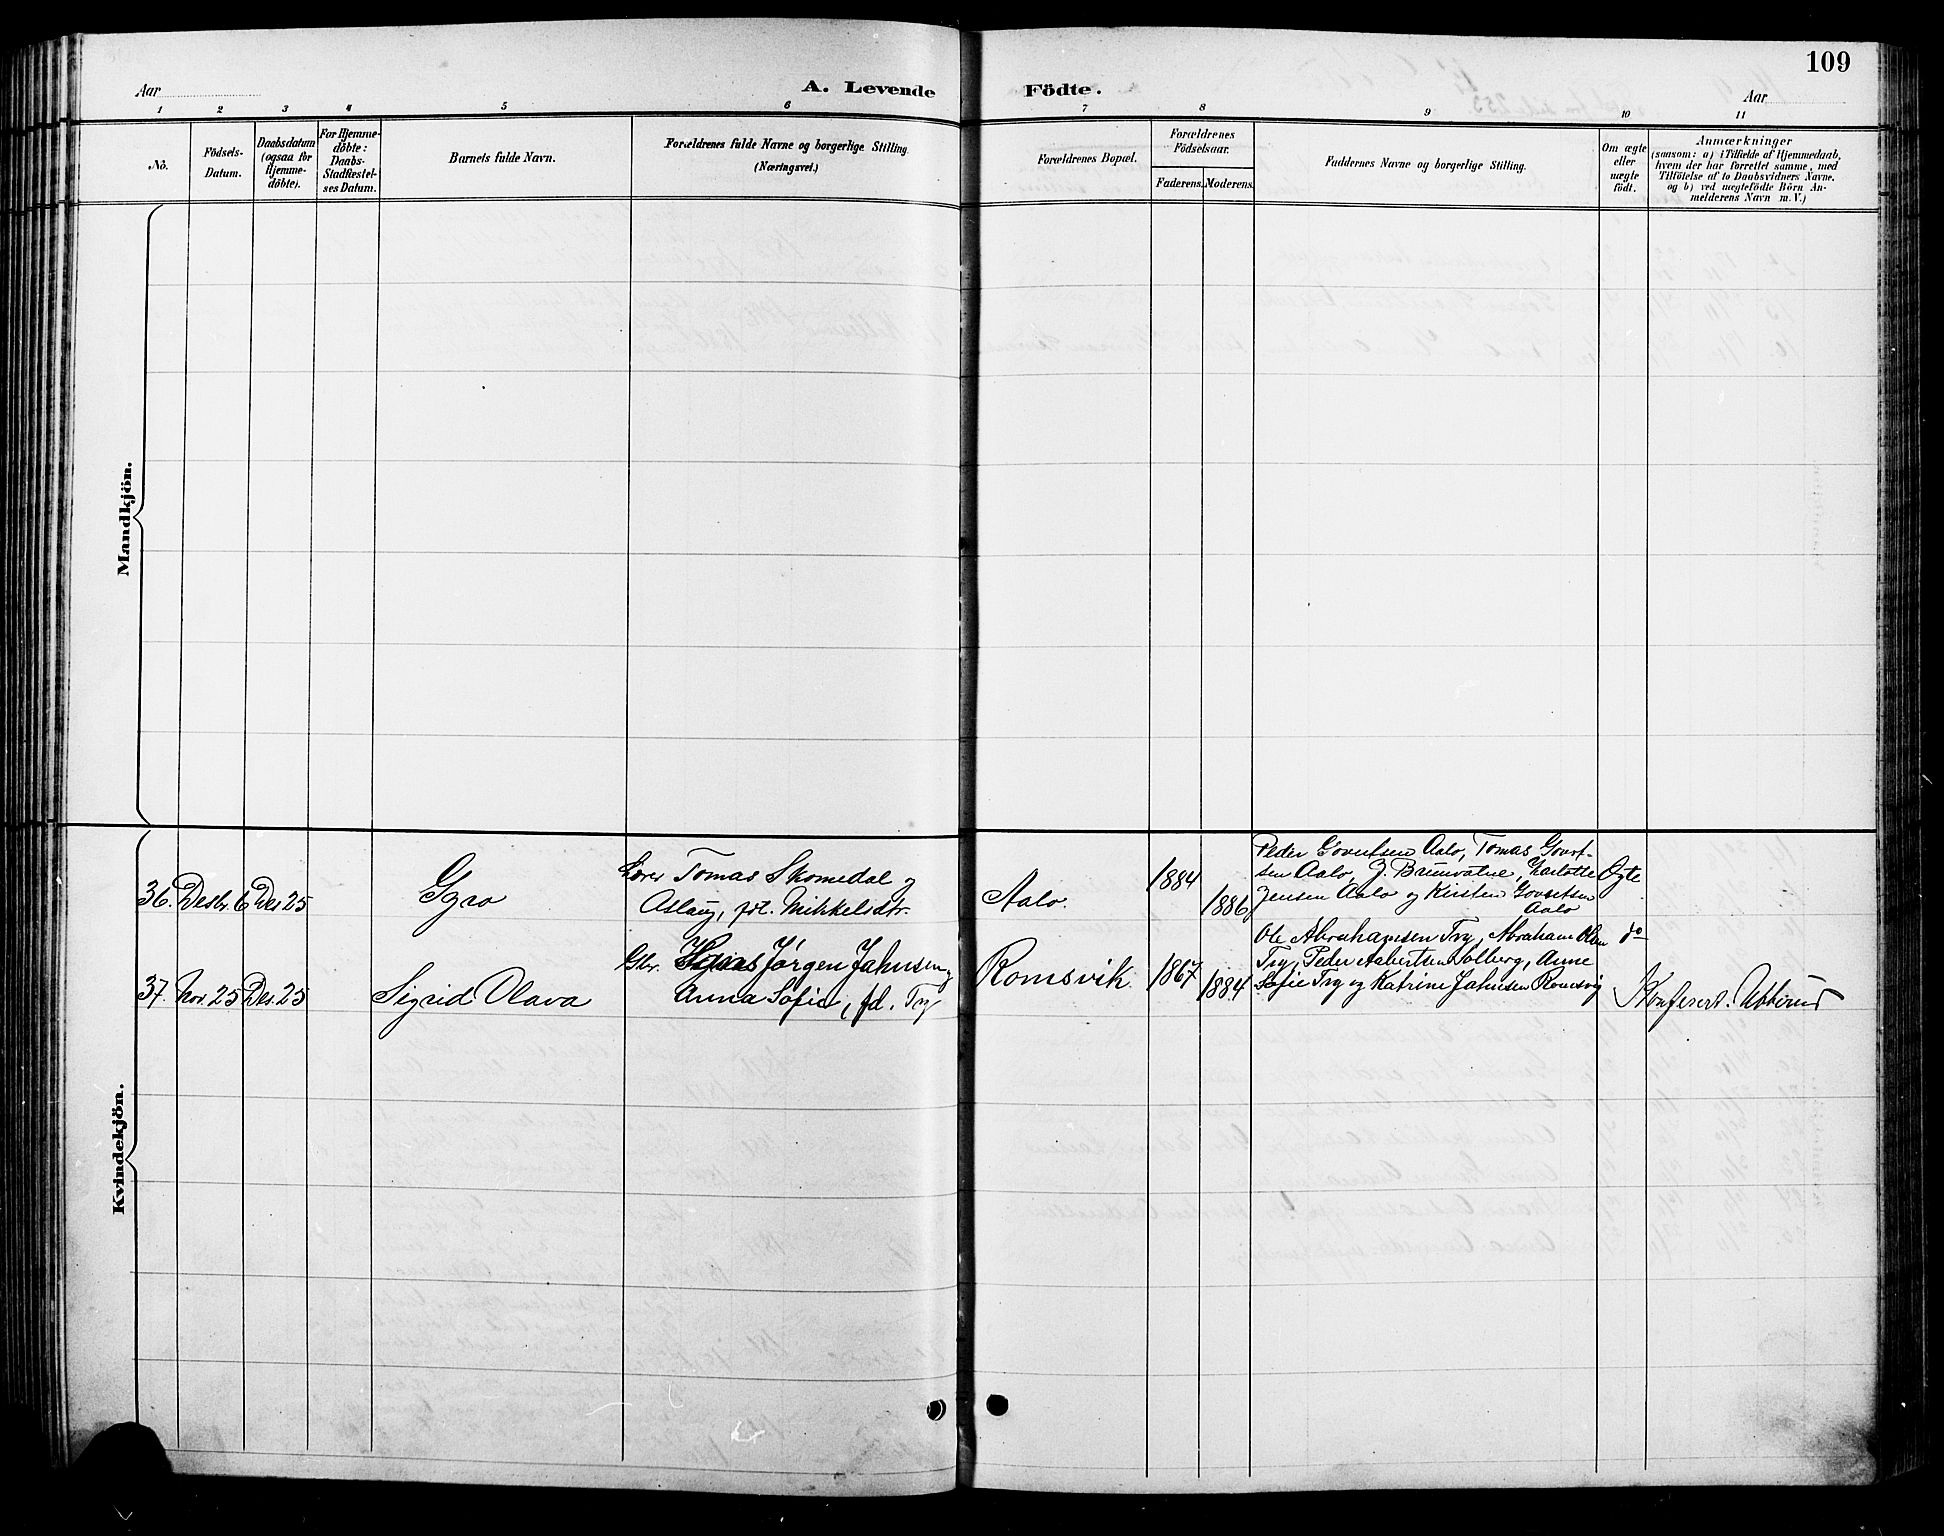 109
Aar
A. Levende Födte.
Aar
1 2 3 4 5 6 7 8 9 10 11
No.
Födsels-
Datum.
Daabsdatum
(ogsaa for
Hjemme-
döbte).
For Hjemme-
döbte:
Daabs-
Stadfæstel-
ses Datum.
Barnets fulde Navn.
Forældrenes fulde Navne og borgerlige Stilling
(Næringsvei.)
Forældrenes Bopæl.
Forældrenes
Födselsaar.
Faderens. Moderens.
Faddernes Navne og borgerlige Stilling.
Om ægte
eller
uægte
födt.
Anmærkninger
(saasom: a) i Tilfælde af Hjemmedaab,
hvem der har forrettet samme, med
Tilföielse af to Daabsvidners Navne.
og b) ved uægtefödte Börn An-
melderens Navn m. V.)
Mandkjön.
Kvindekjön.
36. Desbr. 6 Des 25
Gyro
Lærer Tomas Skomedal og
Aslaug, fdt. Mikkelsdtr.
Aalo.
1884
1886
Peder Govertsen Aalo, Tomas Govert-
sen Aalo, J. Brunvatne, Charlotte
Jensen Aalo og Kirsten Govertsen
Aalo
Ægte
37. Nov. 25 Des. 25
Sigrid Olava
Gbr. Jørgen Jahnsen og
Anna Sofie, fd. Try
Romsvik.
1867
1884
Ole Abrahamsen Try, Abraham Olsen
Try, Peder Aabertsen Solberg, Anne
Sofie Try og Katrine Jahnsen Romsvig
do
Konferert.